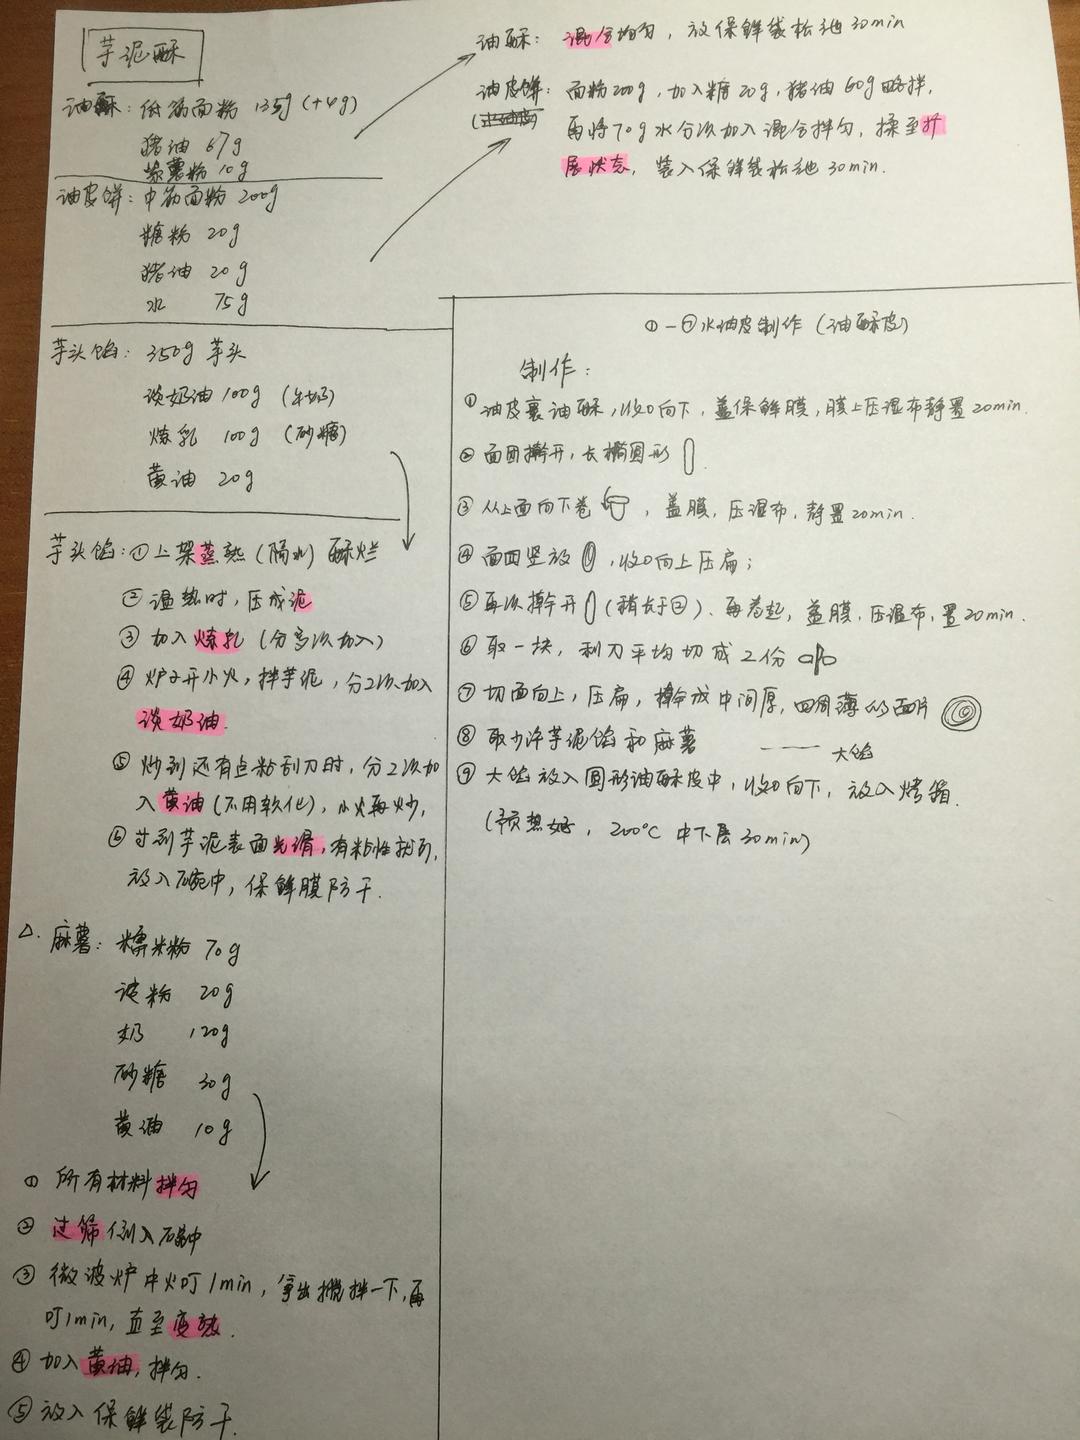 芋泥酥
油酥：低筋面粉 135g (+4g)
猪油 67g
紫薯粉 10g
油皮饼：中筋面粉 200g
糖粉 20g
猪油 20g
水 75g
油酥：混合均匀，放保鲜袋松弛30min
油皮饼：面粉200g，加入糖20g，猪油60g略拌，
再将70g水分次加入混合拌匀，揉至扩
展状态，装入保鲜袋松弛30min.
芋头馅：350g 芋头
淡奶油 100g (牛奶)
炼乳 100g (砂糖)
黄油 20g
芋头馅：①上架蒸熟(隔水) 酥烂
②温热时，压成泥
③加入炼乳(分多次加入)
④炉子开小火，拌芋泥，分2次加入
淡奶油.
⑤炒到还有点粘刮刀时，分2次加
入黄油(不用软化)，小火再炒，
⑥ 芋泥表面光滑，有粘性 ，
放入碗中，保鲜膜防干.
△. 麻薯：糯米粉 70g
淀粉 20g
奶 120g
砂糖 30g
黄油 10g
① 所有材料拌匀
② 过筛倒入碗中
③ 微波炉中火叮1min，拿出搅拌一下，再
叮1min，直至变熟.
④ 加入黄油，拌匀.
⑤ 放入保鲜袋防干.
①-⑤水油皮制作(油酥皮)
制作：
①油皮裹油酥，收口向下，盖保鲜膜，膜上压湿布静置20min.
② 面团擀开，长椭圆形.
③ 从上面向下卷，盖膜，压湿布，静置20min.
④ 面团竖放，收口向上压扁；
⑤ 再次擀开(稍长于②)、再卷起，盖膜，压湿布，置20min.
⑥ 取一块，利刀平均切成2份
⑦ 切面向上，压扁，擀成中间厚，四周薄的面片
⑧ 取少许芋泥馅和麻薯 —— 大馅
⑨ 大馅放入圆形油酥皮中，收口向下，放入烤箱.
(预热好，200℃ 中下层30min)